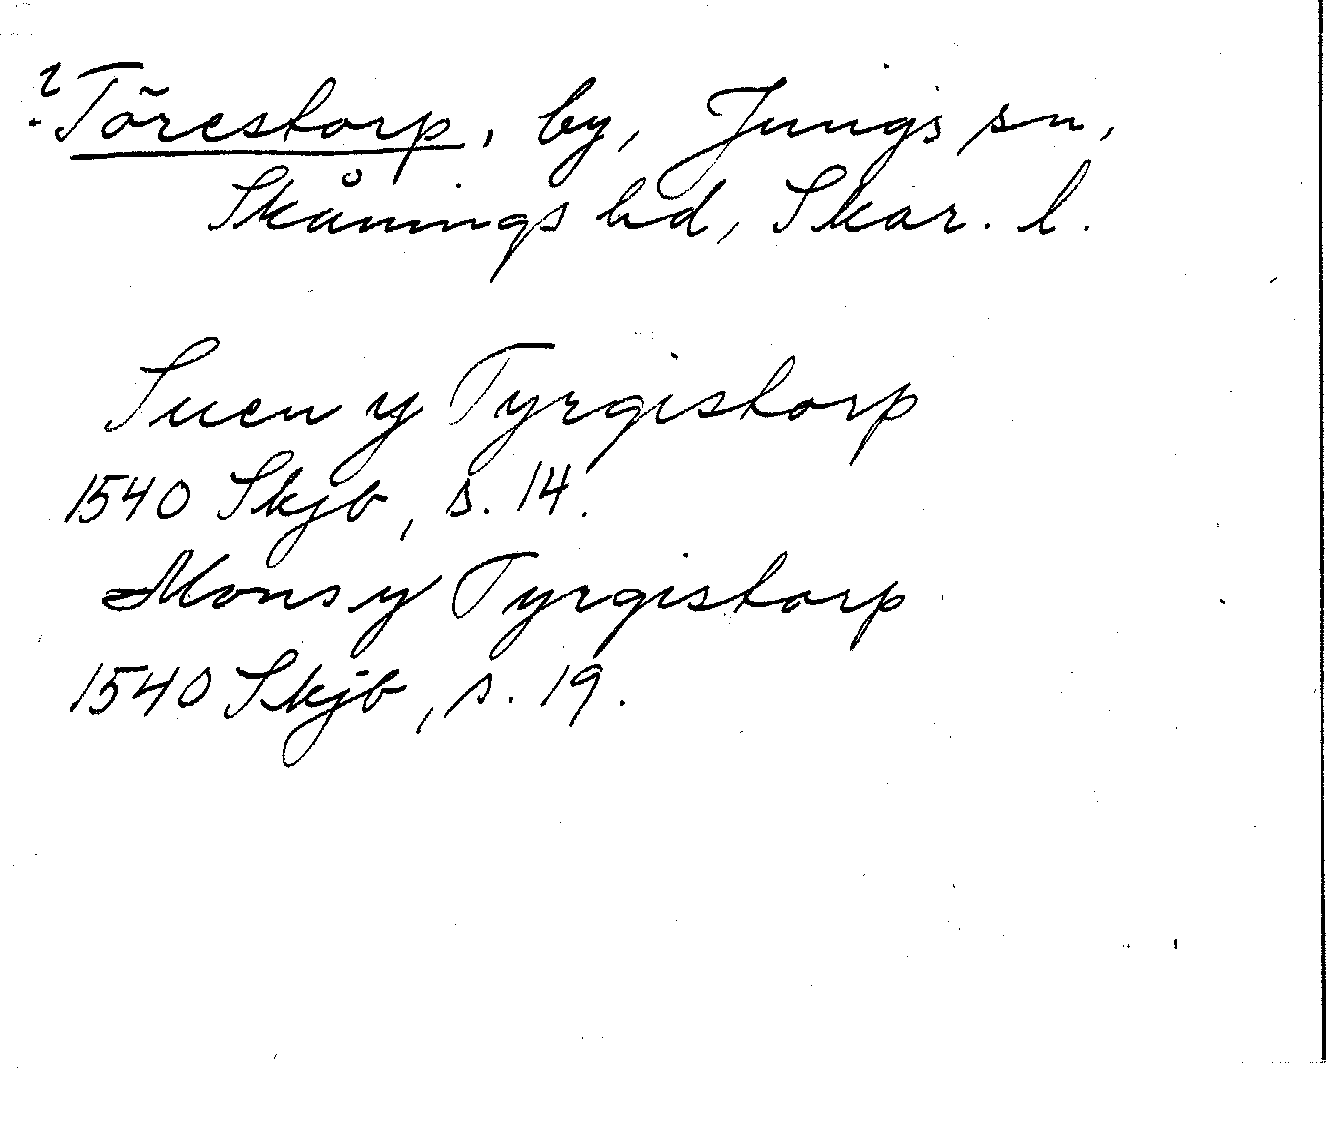 ? Törestorp, by, Jungs sn,
Skånings hd, Skar. l.
Suen y Tyrgistorp
1540 Skjb, s. 14.
Mons y Tyrgistorp
1540 Skjb, s. 19.